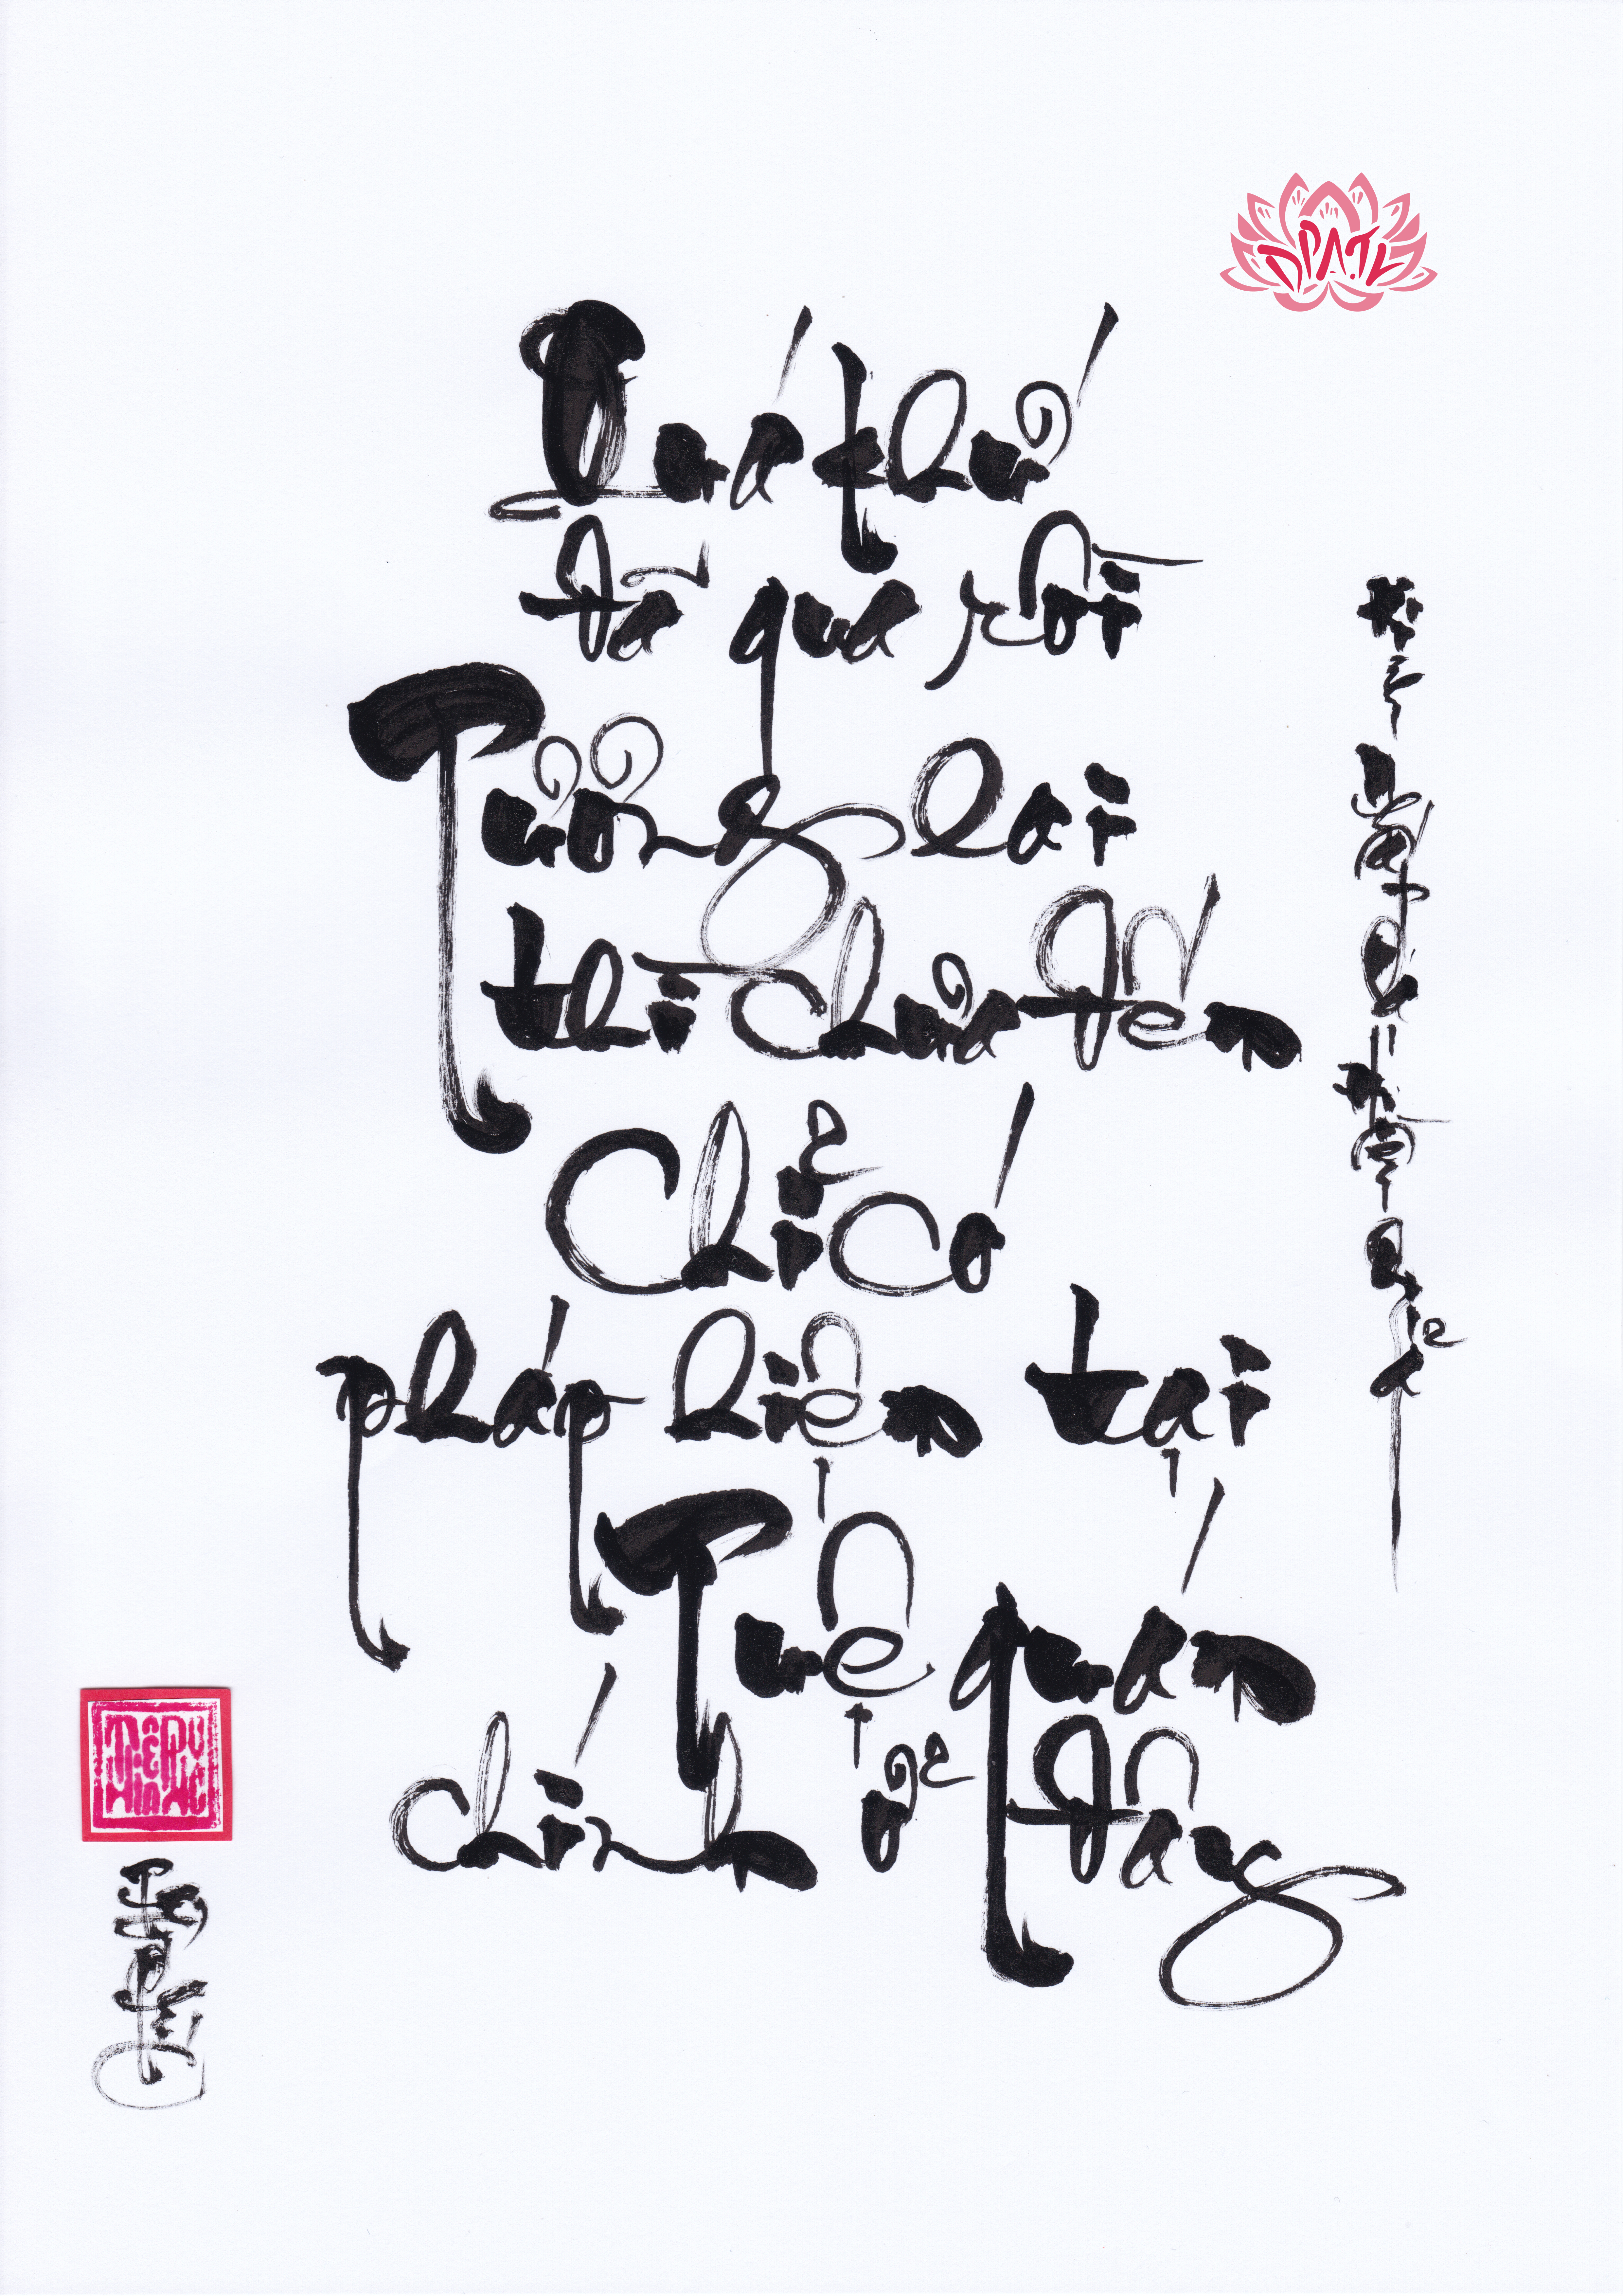 ĐPA.TL
Quá khứ
đã qua rồi
Tương lai
thì chưa đến
Chỉ có
pháp hiện tại
Tuệ quán
chính ở đây